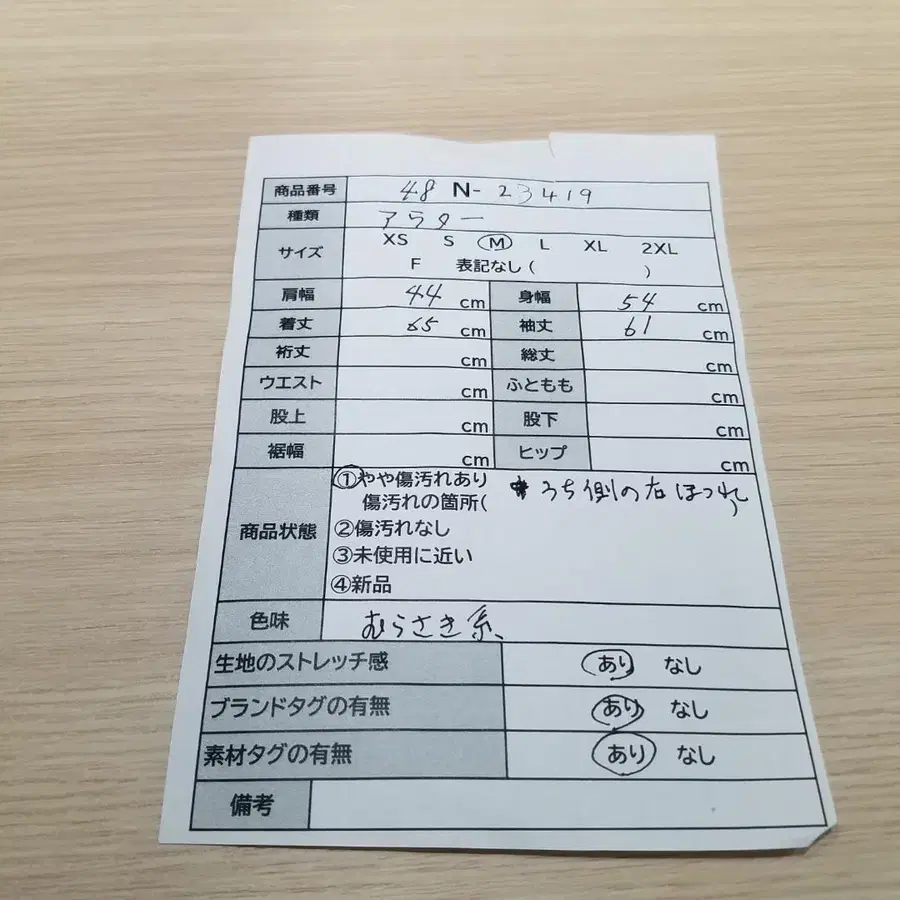 商品番号 48 N- 23419
種類 アウター
サイズ XS S M L XL 2XL
F 表記なし ( )
肩幅 44 cm 身幅 54 cm
着丈 65 cm 袖丈 61 cm
裄丈 cm 総丈 cm
ウエスト cm ふともも cm
股上 cm 股下 cm
裾幅 cm ヒップ cm
商品状態 ①やや傷汚れあり
傷汚れの箇所( うち側の右ほつれ )
②傷汚れなし
③未使用に近い
④新品
色味 むらさき系
生地のストレッチ感 あり なし
ブランドタグの有無 あり なし
素材タグの有無 あり なし
備考